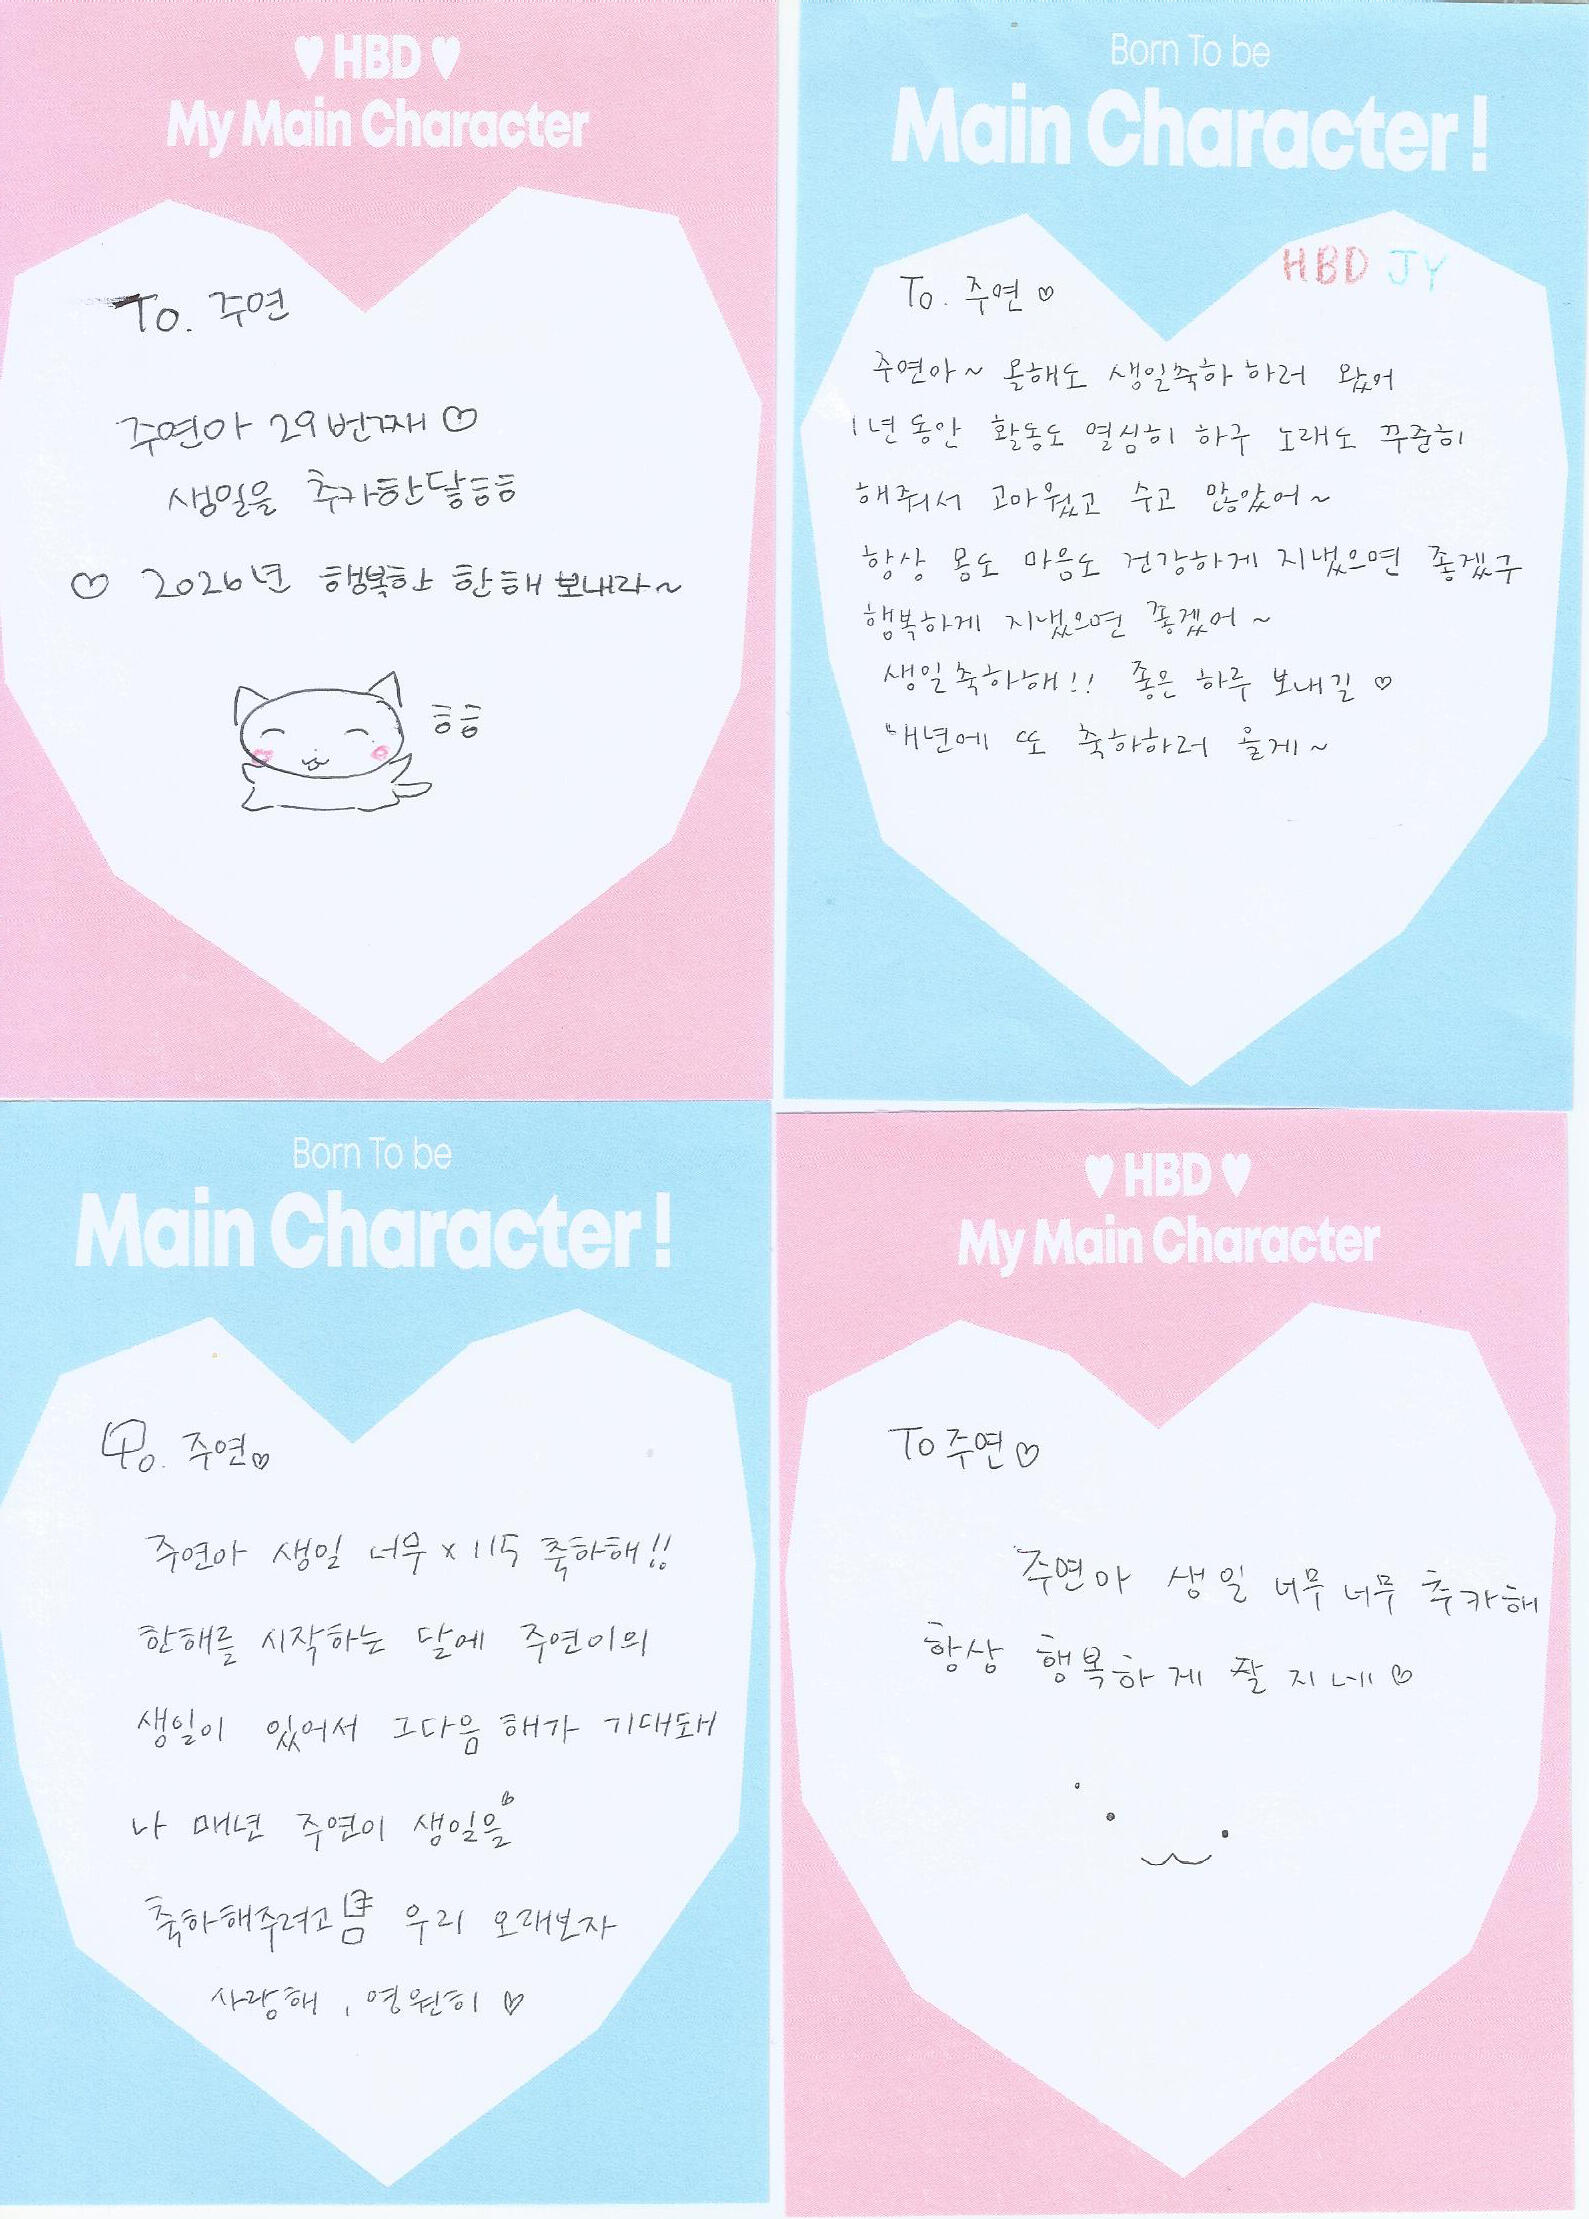 ♥ HBD ♥
My Main Character
To. 주연
주연아 29번째 ♡
생일을 추카한닿ㅎㅎ
♡ 2026년 행복한 한해 보내라~
ㅎㅎ
Born To be
Main Character!
HBD JY
To. 주연 ♡
주연아~ 올해도 생일축하 하러 왔어
1년동안 활동도 열심히 하구 노래도 꾸준히
해줘서 고마웠고 수고 많았어~
항상 몸도 마음도 건강하게 지냈으면 좋겠구
행복하게 지냈으면 좋겠어~
생일축하해!! 좋은 하루 보내길 ♡
내년에 또 축하하러 올게~
Born To be
Main Character!
To. 주연♡
주연아 생일 너무×115 축하해!!
한해를 시작하는 달에 주연이의
생일이 있어서 그다음 해가 기대돼
나 매년 주연이 생일을
축하해주려고 우리 오래보자
사랑해, 영원히 ♡
♥ HBD ♥
My Main Character
To 주연♡
주연아 생일 너무너무 추카해
항상 행복하게 잘 지내♡